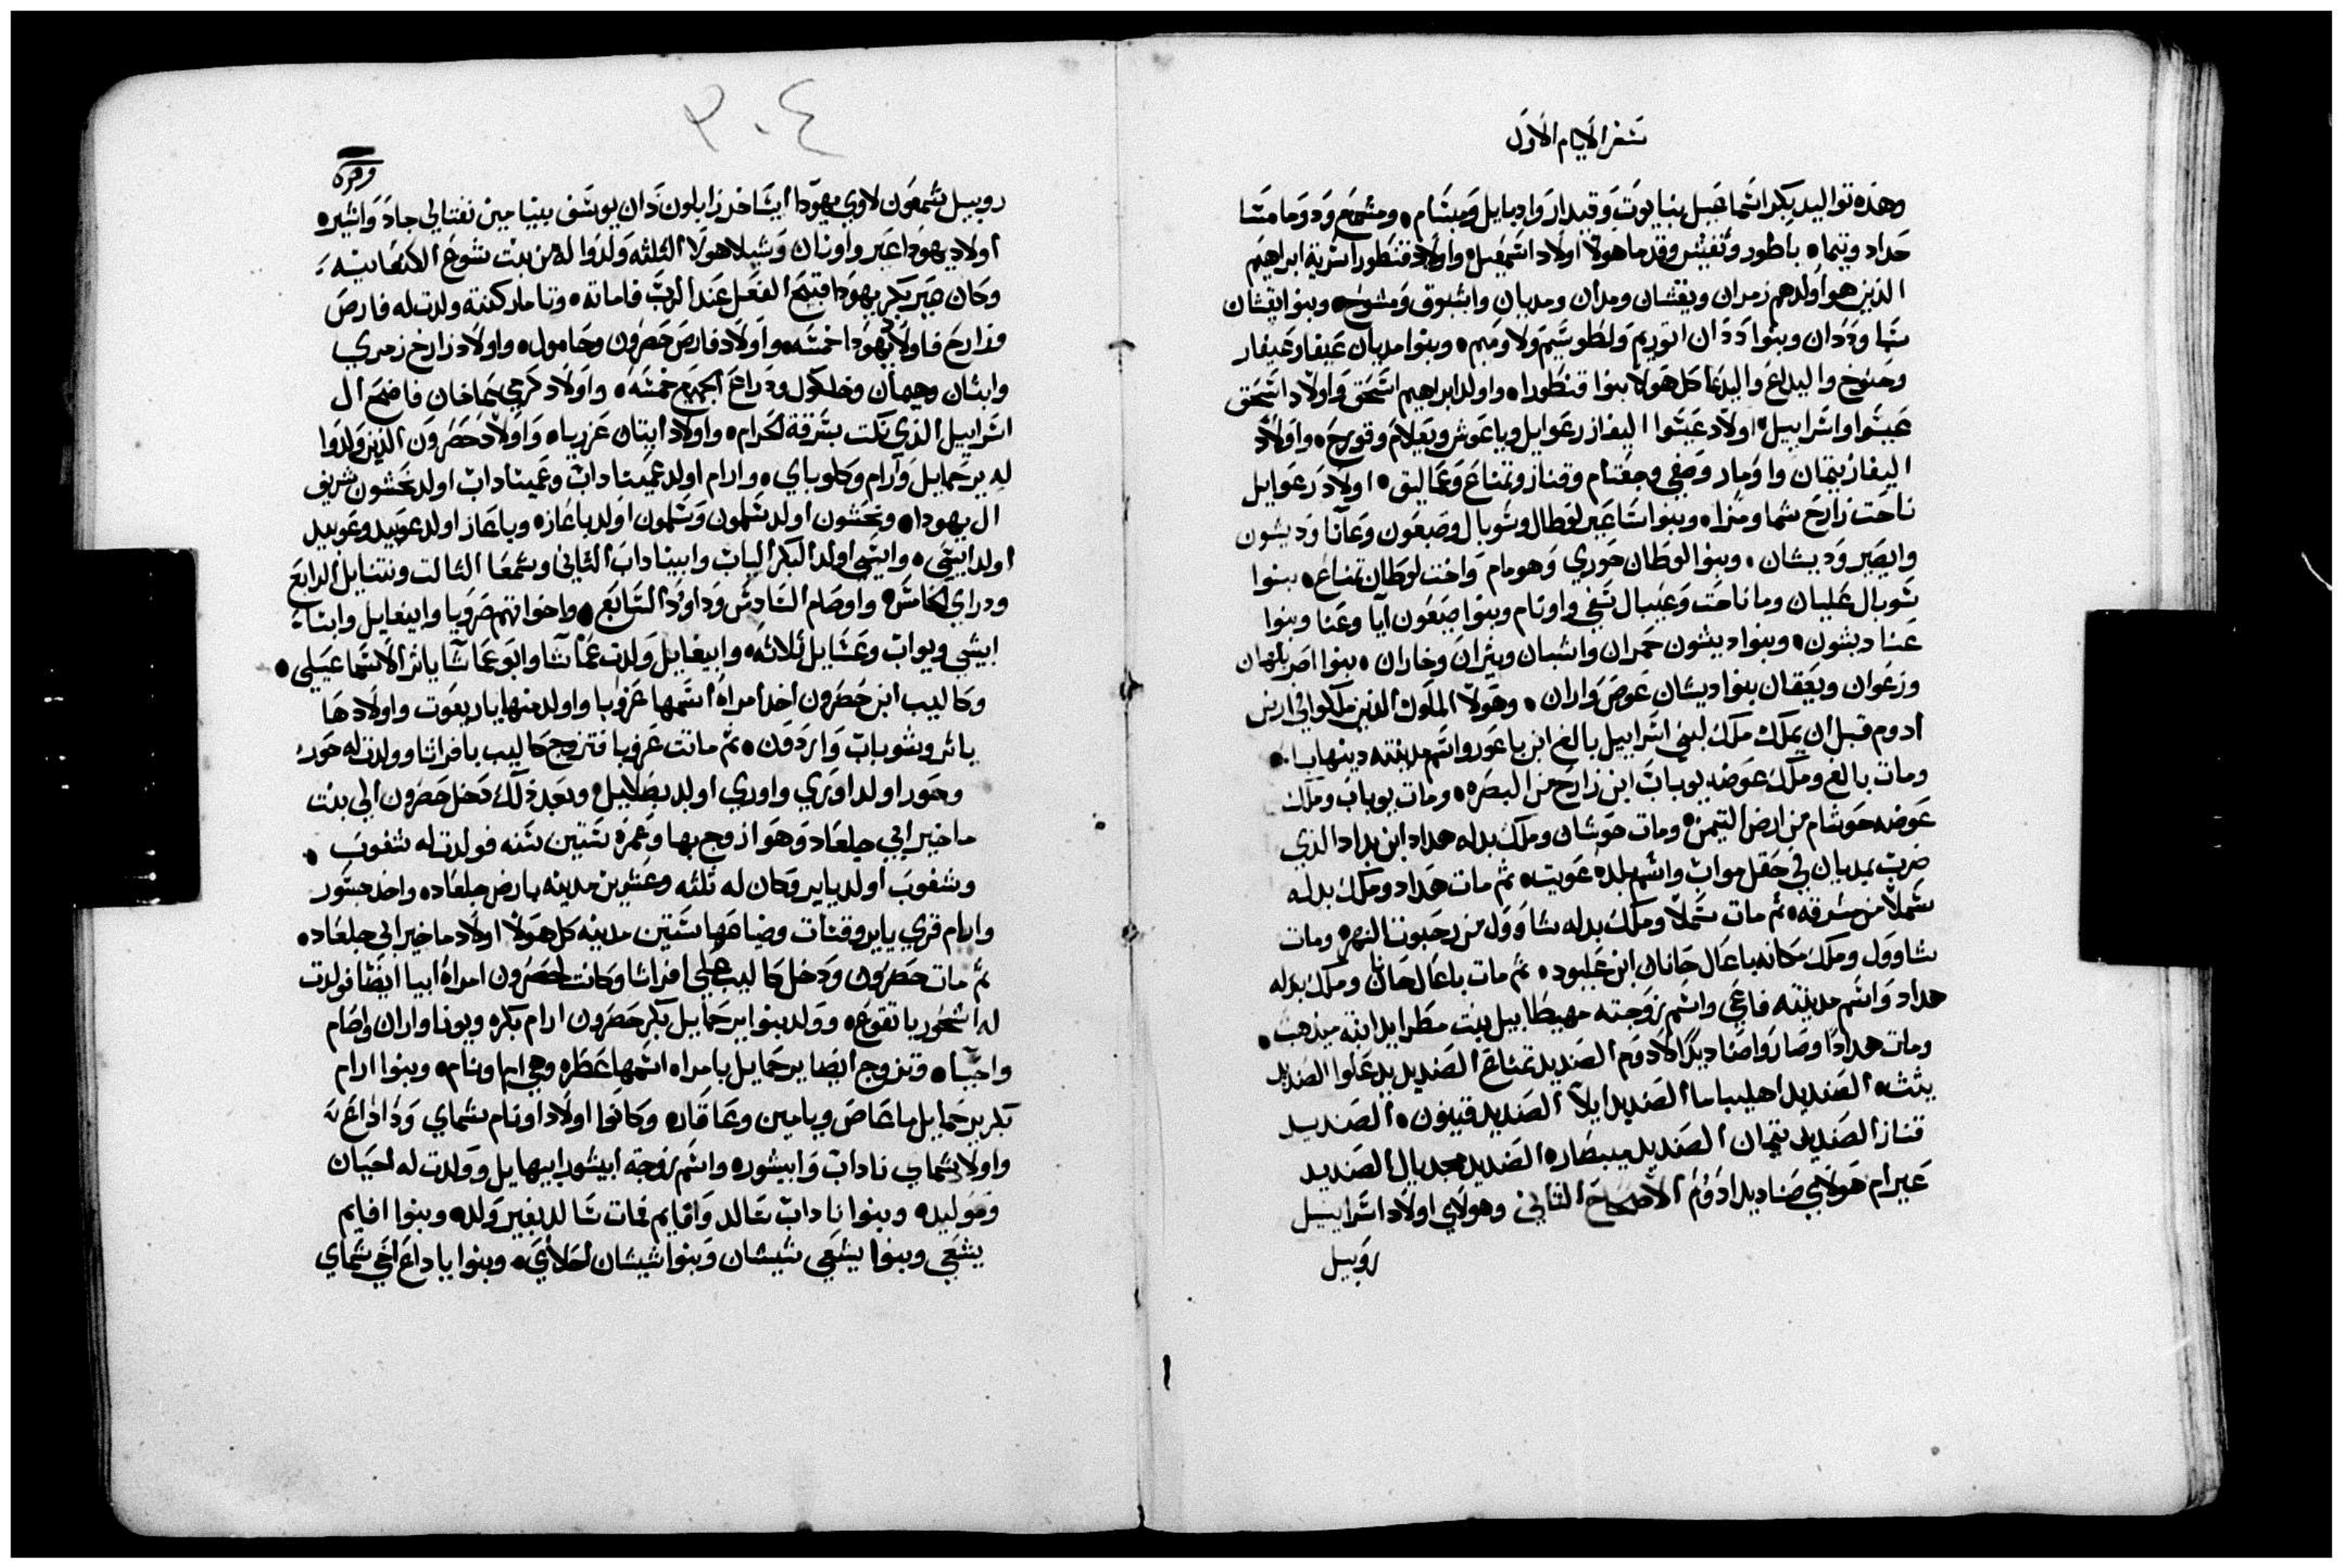 سفر الايام الاول
وهذه تواليد بكر اسماعيل بنايوت وقيدار وادبايل ومبسام ومشمع ودوما مسا
حداد وتيما باطور ونفيس وقدما هولاء اولاد اسمعيل واولاد قنطورا سرية ابراهيم
الذين هو اولدهم زمران ويقشان ومدان ومديان واشبوق وشوح وبنوا يقشان
سبا وددان وبنوا ددان اتوريم ولطوشيم ولاوميم وبنوا مديان عيفا وعيفار
وحنوخ والبداع والبدعا كل هولا بنوا قنطورا واولد ابراهيم اسحق واولاد اسحق
عيسوا واسراييل اولاد عيسوا اليفاز رعوايل وياعوش ويعلام وقورح واولاد
اليفاز يتمان واومار وصفي وجعتام وقناز وتمناع وعماليق اولاد رعوايل
ناحت زارح شما ومزا وبنوا ساعير لوطان وشوبال وصبعون وعانا وديشون
وايصير وديشان وبنوا لوطان حوري وهومام واخت لوطان تمناع بنوا
شوبال عليان وماناحت وعيبال شفي واونام وبنوا صبعون آيا وعنا وبنوا
عنا ديشون وبنوا ديشون حمران واشبان ويثران وخاران بنوا اصر بلهان
وزعوان ويعقان بنوا ديشان عوص واران وهولا الملوك الذين ملكوا في ارض
ادوم قبل ان يملك ملك لبني اسراييل بالع ابن باعور واسم مدينته دينهابا
ومات بالع وملك عوضه يوباب ابن زارح من البصره ومات يوباب وملك
عوضه حوشام من ارض التيمن ومات حوشان وملك بدله هداد ابن بداد الذي
ضرب بمديان في حقل مواب واسم بلده عويت ثم مات هداد وملك بدله
شملا من مسرقه ثم مات شملا وملك بدله شاوول من رحبوت النهر ومات
شاوول وملك مكانه باعال حانان ابن عابود ثم مات باعال حانان وملك بدله
هداد واسم مدينته فاعي واسم زوجته مهيطابيل بنت مطرايد ابنة ميذهب
ومات هدادا وصاروا صناديد الادوم الصنديد تمناع الصنديد يدعلوا الصنديد
يثث الصنديد اهليباما الصنديد ايلا الصنديد فينون الصنديد
قناز الصنديد تيمان الصنديد مبصار الصنديد مجديال الصنديد
عيرام هولاي صناديد ادوم الاصحاح الثاني وهولاي اولاد اسراييل
روبيل
٣٠٤
روبيل شمعون لاوي يهودا ايساخر زابلون دان يوسف بنيامين نفتالي جاد واشير
اولاد يهودا عير واونان وشيلا هولا الثلثه ولدوا له من بنت شوع الكنعانيه
وكان عير بكر يهودا قبيح الفعل عند الرب فاماته وتامار كنته ولدت له فارص
وزارح فاولاد يهودا خمسه واولاد فارص حصرون وحامول واولاد زارح زمري
وايثان وهيمان وخلكول ودراع الجميع خمسه واولاد كرمي عاخان فاضح ال
اسراييل الذي نكث بسرقة الحرام واولاد ايتان عزريا واولاد حصرون الذين ولدوا
له يرحمايل وآرام وكلوباي وارام اولد عميناداب وعميناداب اولد نحشون شريف
ال يهودا ونحشون اولد سلمون وسلمون اولد باعاز وباعاز اولد عوبيد وعوبيد
اولد ايشي وايشي اولد البكر الياب وابيناداب الثاني وشمعا الثالت ونتنايل الرابع
ودراي الخامس واوصام السادس وداود السابع واخواتهم صرويا وابيغايل وابنا
ابيشي ويواب وعسايل ثلاثه وابيغايل ولدت عماسا وابو عماسا ياثر الاسماعيلي
وكاليب ابن حصرون اخذ امراة اسمها عزوبا واولد منها ياريعوت واولادها
ياشر وشوباب واردون ثم ماتت عزوبا فتزوج كاليب بافراثا وولدت له حور
وحور اولد اوري واوري اولد بصلاييل وبعد ذلك دخل حصرون الي بنت
ماخير ابي جلعاد وهو ازوج بها وعمره ستين سنه فولدت له شغوب
وشغوب اولد يايير وكان له ثلثه وعشرين مدينه بارض جلعاد واخذ جسور
وارام قري يايير وقنات وضياعها ستين مدينه كل هولا اولاد ماخير ابي جلعاد
ثم مات حصرون ودخل كاليب علي افراثا وكانت لحصرون امراة ابيا ايضا فولدت
له اشحور يا تقوع وولد بنوا يرحمايل بكر حصرون ارام بكره وبونا واران واصام
واحيا وتزوج ايضا يرحمايل بامراه اسمها عطره وهي ام اونام وبنوا ارام
بكر يرحمايل ماعاص ويامين وعاقار وكانوا اولاد اونام شماي وداداع
واولاد شماي ناداب وابيشور واسم زوجة ابيشور ابيهايل وولدت له احبان
وموليد وبنوا ناداب سالد وافايم فمات سالد بغير ولد وبنوا افايم
يشعي وبنوا يشعي شيشان وبنوا شيشان احلاي وبنوا ياداع اخي شماي